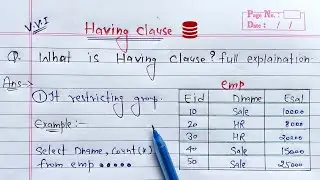 V.V.I
Having clause
Page No.:
Date: / /
Q. What is Having clause? full explaination
Ans:-
① It restricting group.
Example:-
Select Dname, Count(*)
from emp
emp
Eid Dname Esal
10 Sale 10000
20 HR 8000
30 HR 20000
40 Sale 15000
50 Sale 25000